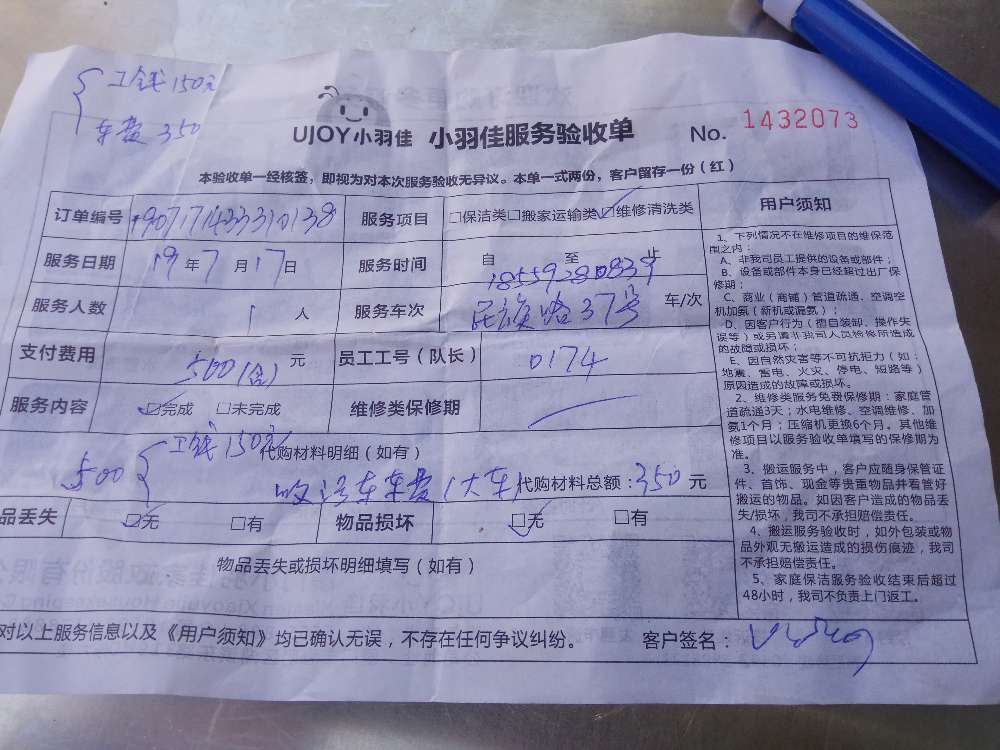 工钱150元
车费350
UJOY小羽佳 小羽佳服务验收单 No. 1432073
本验收单一经核签，即视为对本次服务验收无异议。本单一式两份，客户留存一份（红）
订单编号 服务项目 □保洁类□搬家运输类☑维修清洗类
服务日期 19年7月17日 服务时间 自 至 止
18559280839
服务人数 1人 服务车次 民族路37号 车/次
支付费用 500(含)元 员工工号（队长） 0174
服务内容 ☑完成 □未完成 维修类保修期
500 工钱150元 代购材料明细（如有）
车费(大车) 代购材料总额：350元
品丢失 ☑无 □有 物品损坏 ☑无 □有
物品丢失或损坏明细填写（如有）
对以上服务信息以及《用户须知》均已确认无误，不存在任何争议纠纷。 客户签名：
用户须知
1、下列情况不在维修项目的维保范
围之内：
A、非我司员工提供的设备或部件；
B、设备或部件本身已经超过出厂保
修期；
C、商业（商铺）管道疏通、空调空
机加氨（新机或漏氨）；
D、因客户行为（擅自装卸、操作失
误等）或另请非我司人员检修所造成
的故障或损坏；
E、因自然灾害等不可抗拒力（如：
地震、雷电、火灾、停电、短路等）
原因造成的故障或损坏。
2、维修类服务免费保修期：家庭管
道疏通3天；水电维修、空调维修、加
氨1个月；压缩机更换6个月。其他维
修项目以服务验收单填写的保修期为
准。
3、搬运服务中，客户应随身保管证
件、首饰、现金等贵重物品并看管好
搬运的物品。如因客户造成的物品丢
失/损坏，我司不承担赔偿责任。
4、搬运服务验收时，如外包装或物
品外观无搬运造成的损伤痕迹，我司
不承担赔偿责任。
5、家庭保洁服务验收结束后超过
48小时，我司不负责上门返工。